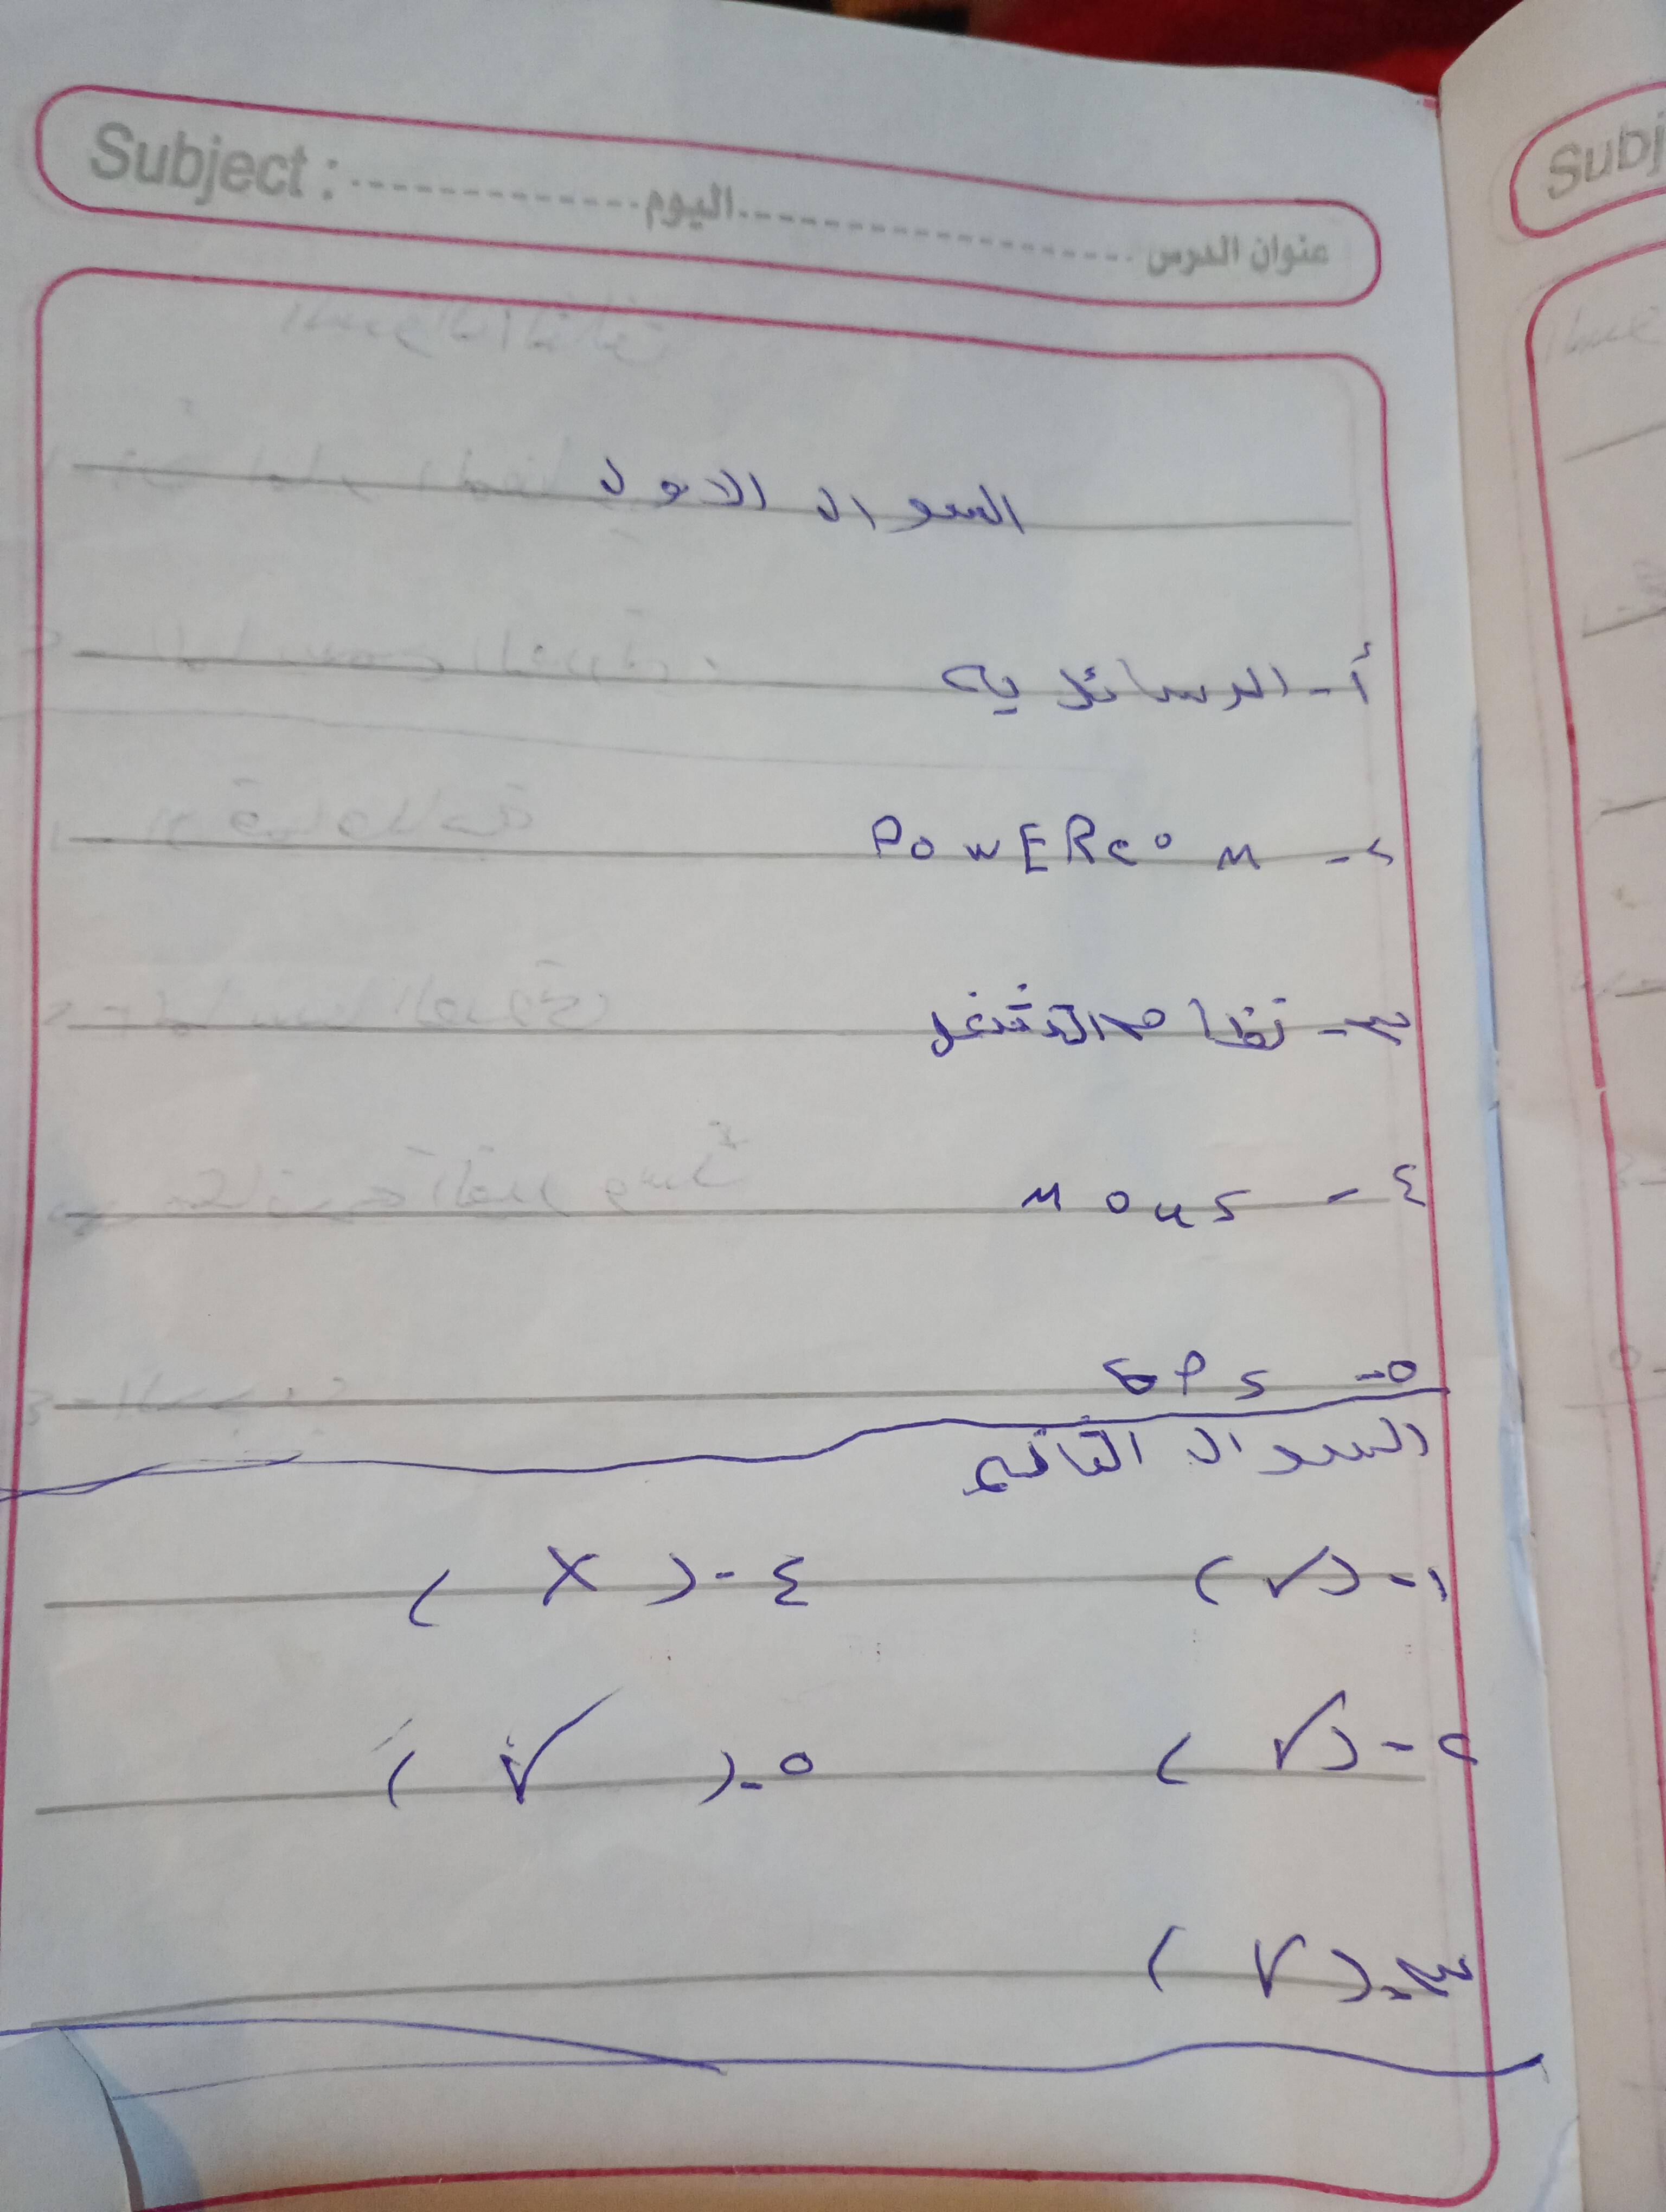 Subject : اليوم عنوان الدرس
السوال الاول
أ- الوسائط
٢- POWERCOM
٣- نظام التشغل
٤- MOUS
٥- GPS
السوال الثاني
١- (✓) ٤- (X)
٢- (✓) ٥- (✓)
٣- (✓)
Subj